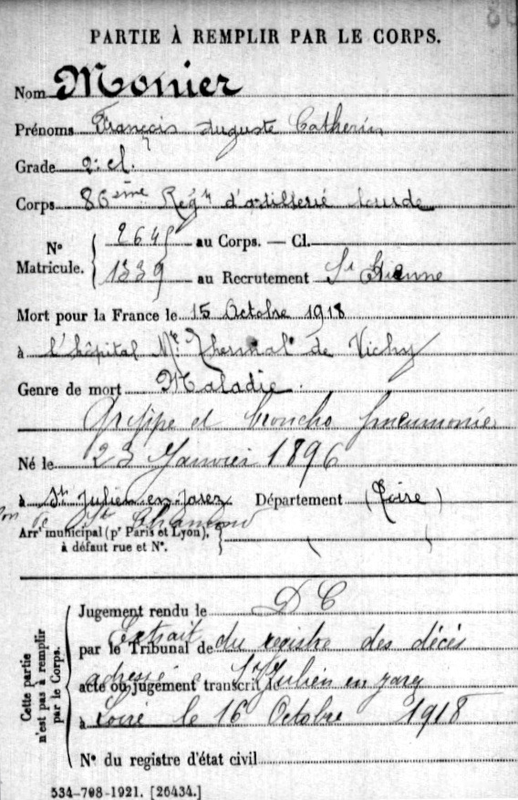 PARTIE À REMPLIR PAR LE CORPS.
Nom Monier
Prénoms François Auguste Catherin
Grade 2e cl.
Corps 86ème Régt d'artillerie lourde
N° Matricule. { 2645 au Corps. — Cl.
1339 au Recrutement St Etienne
Mort pour la France le 15 Octobre 1918
à l'hôpital Mre Thermal de Vichy
Genre de mort Maladie.
Grippe et broncho pneumonie
Né le 23 Janvier 1896
à St Julien-en-Jarez Département (Loire)
on de St Chamond
Arrt municipal (pr Paris et Lyon),
à défaut rue et N°.
Cette partie n'est pas à remplir par le Corps.
Jugement rendu le D C
par le Tribunal de Extrait du registre des décès
acte ou jugement transcrit le adressé à St Julien en Jarez
à Loire le 16 Octobre 1918
N° du registre d'état civil
534-708-1921. [26434.]